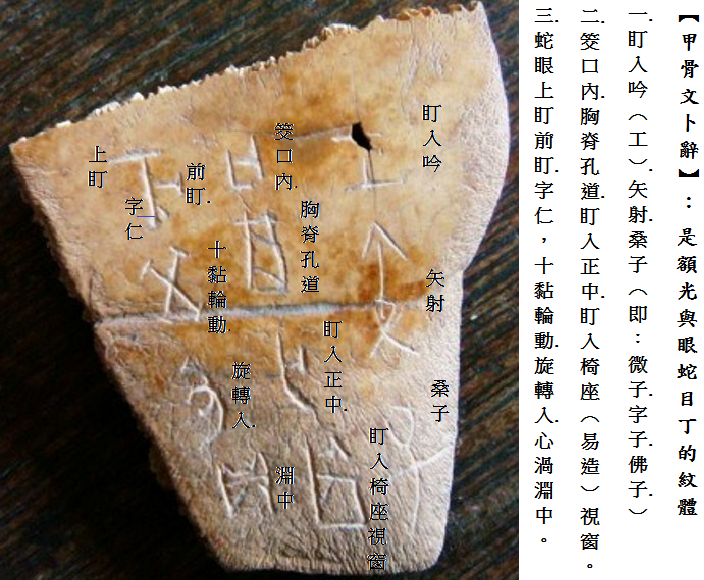 【甲骨文卜辭】：是額光與眼蛇目丁的紋體
一.盯入吟（工）.矢射.桑子（即：微子.字子.佛子.）
二.筊口內.胸脊孔道.盯入正中.盯入椅座（易造）視窗。
三.蛇眼上盯前盯.字仁，十黏輪動.旋轉入.心渦淵中。
盯入吟
矢射
桑子
筊口內.
胸脊孔道
盯入正中.
盯入椅座視窗
上盯
前盯.
字仁
十黏輪動.
旋轉入.
淵中